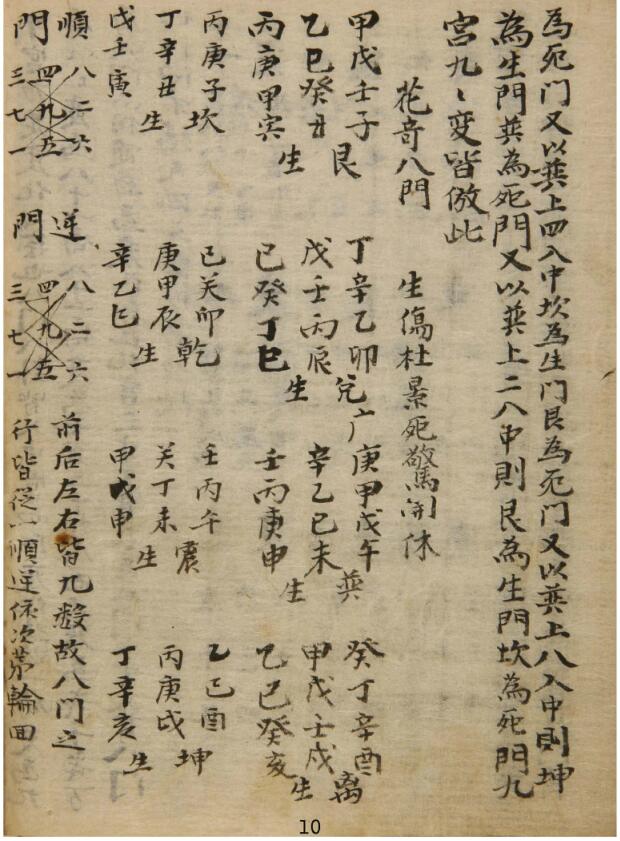 為死门又以巽上四入中坎為生门艮為死门又以巽上八入中則坤
為生門巽為死門又以巽上二八中則艮為生門坎為死門九
宮九〻變皆倣此
花奇八門 生傷杜景死驚開休
甲戊壬子 丁辛乙卯 庚甲戊午 癸丁辛酉
艮 兌 巽 離
乙巳癸丑 戊壬丙辰 辛乙巳未 甲戊壬戌
生 生 生 生
丙庚甲寅 巳癸丁巳 壬丙庚申 乙巳癸亥
丙庚子 己癸卯 壬丙午 乙己酉
坎 乾 震 坤
丁辛丑 庚甲辰 癸丁未 丙庚戌
生 生 生 生
戊壬寅 辛乙巳 甲戊申 丁辛亥
順 八二六 逆 八二六 前后左右皆九數故八門之
四九五 四九五
門 三七一 門 三七一 行皆從一順逆依次第輪回
10